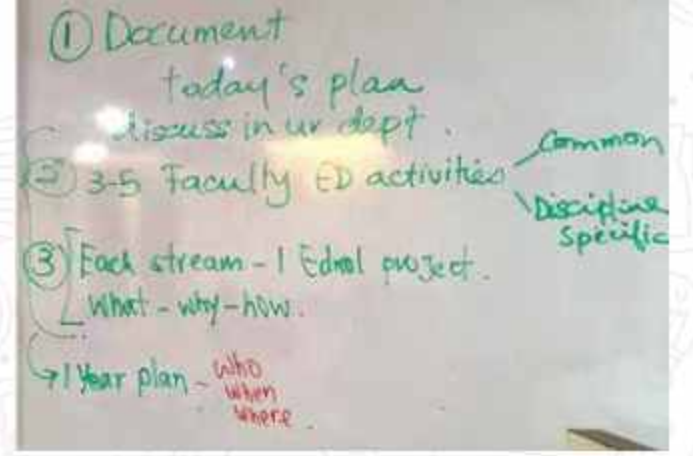 ① Document
today's plan
discuss in ur dept.
② 3-5 Faculty ED activities
Common
Discipline
Specific
③ Each stream - 1 Ednol project.
What - why - how.
→ 1 Year plan - who
when
where.